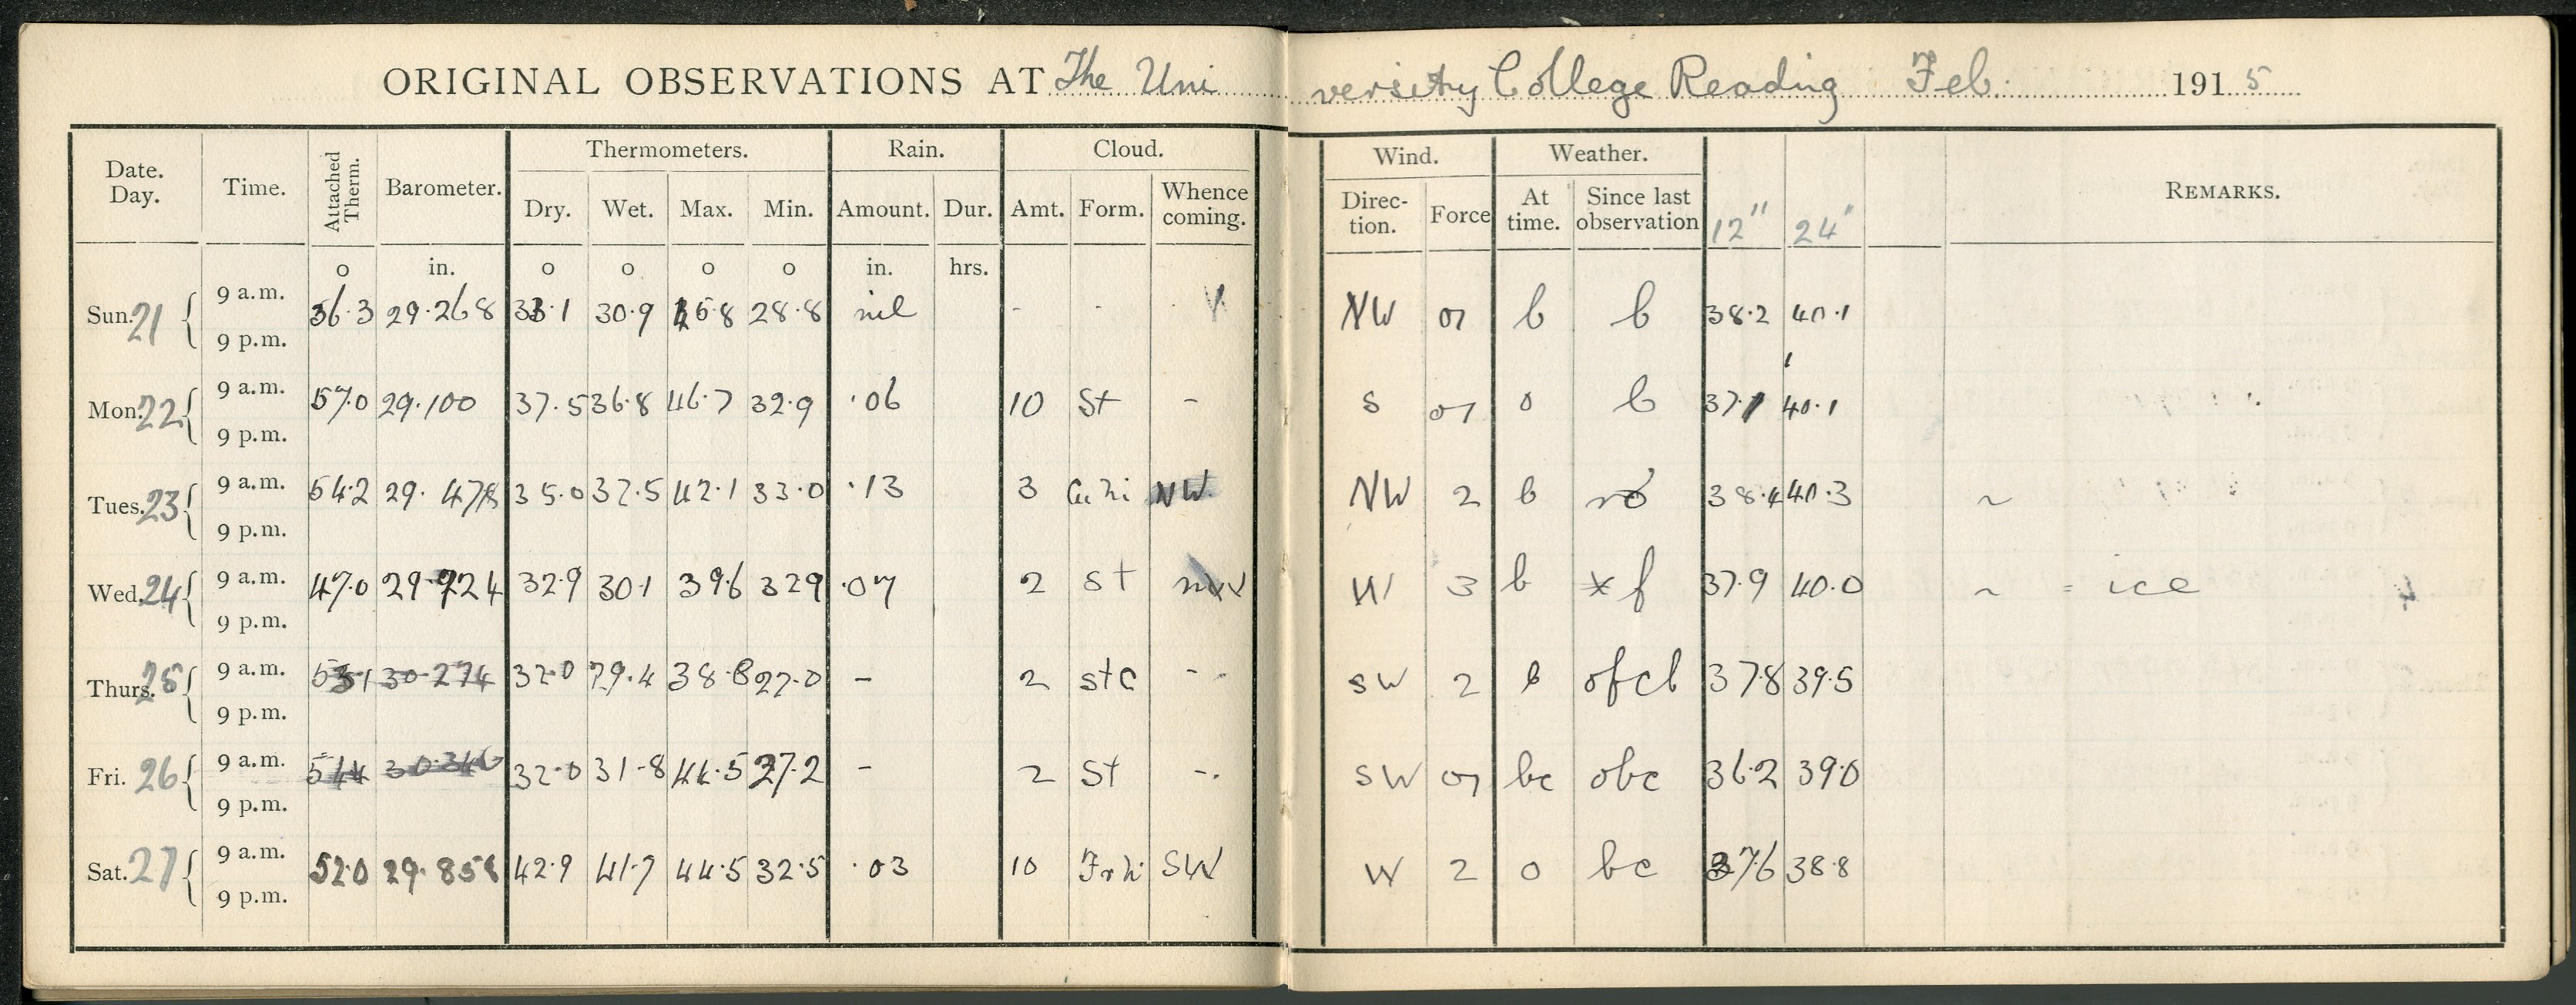 ORIGINAL OBSERVATIONS AT The University College Reading Feb. 1915
Date. Day. Time. Attached Therm. Barometer. Thermometers. Rain. Cloud. Wind. Weather. REMARKS.
Dry. Wet. Max. Min. Amount. Dur. Amt. Form. Whence coming. Direction. Force At time. Since last observation 12" 24"
o in. o o o o in. hrs.
Sun. 21 9 a.m. 56.3 29.268 33.1 30.9 45.8 28.8 nil - - NW 01 b b 38.2 40.1
9 p.m.
Mon. 22 9 a.m. 57.0 29.100 37.5 36.8 46.7 32.9 .06 10 St - S 01 o b 37.1 40.1
9 p.m.
Tues. 23 9 a.m. 54.2 29.478 35.0 32.5 42.1 33.0 .13 3 Cu Ni NW NW 2 b ro 38.4 40.3 ~
9 p.m.
Wed. 24 9 a.m. 47.0 29.924 32.9 30.1 39.6 32.9 .07 2 St W 3 b * f 37.9 40.0 ~ = ice
9 p.m.
Thurs. 25 9 a.m. 53.1 30.274 32.0 29.4 38.8 27.0 - 2 St C - SW 2 b ofcb 37.8 39.5
9 p.m.
Fri. 26 9 a.m. 54.4 30.346 32.0 31.8 44.5 27.2 - 2 St - SW 01 bc obc 36.2 39.0
9 p.m.
Sat. 27 9 a.m. 52.0 29.858 42.9 41.7 44.5 32.5 .03 10 Fr Ni SW W 2 o bc 37.6 38.8
9 p.m.